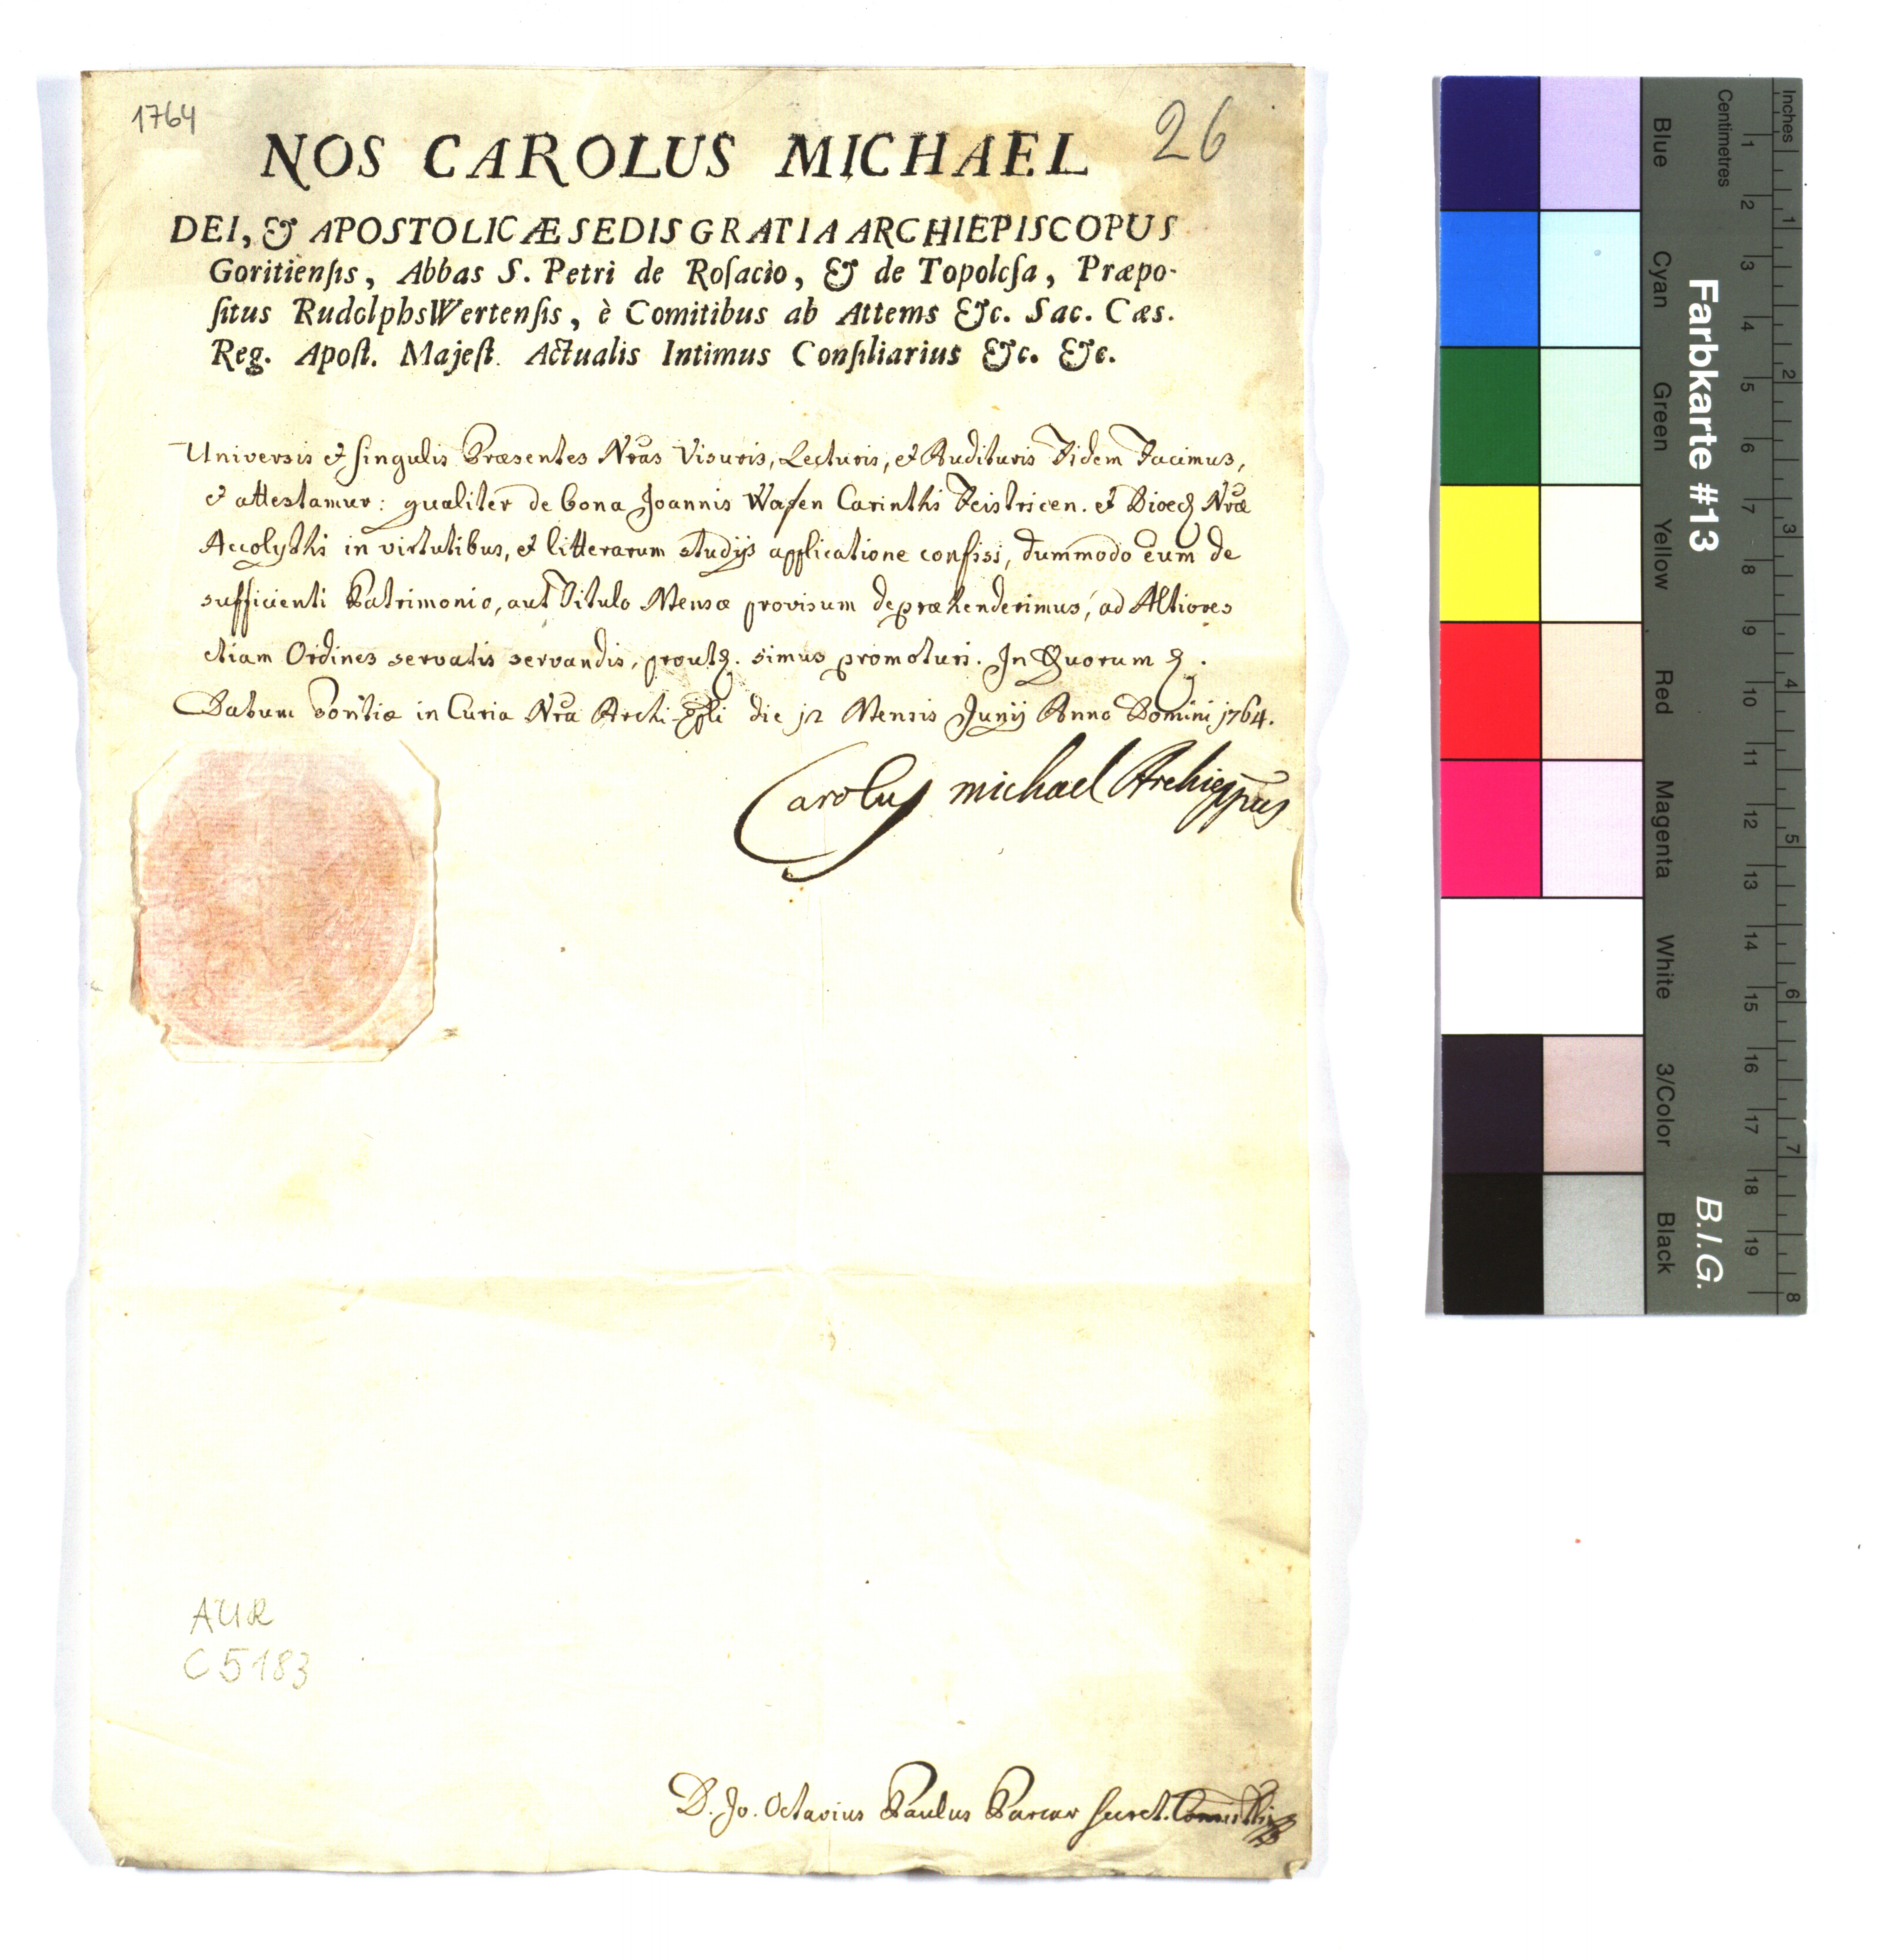 1764
26
NOS CAROLUS MICHAEL
DEI, & APOSTOLICÆ SEDIS GRATIA ARCHIEPISCOPUS
Goritiensis, Abbas S. Petri de Rosacio, & de Topolcsa, Præpo-
situs RudolphsWertensis, è Comitibus ab Attems &c. Sac. Cæs.
Reg. Apost. Majest. Actualis Intimus Consiliarius &c. &c.
Universis et singulis Præsentes Nras Visuris, Lecturis, et Audituris Fidem Facimus,
et attestamur: qualiter de bona Joannis Wasen Carinthi Feistricen. et Dioec Nræ
Accolythi in virtutibus, et litterarum studijs applicatione confisi, dummodo eum de
sufficienti Patrimonio, aut Titulo Mensæ provisum depræhenderimus, ad Altiores
etiam Ordines servatis servandis, prout. simus promoturi. In Quorum
Datum Goritiæ in Curia Nra Archi-Epli die 12 Mensis Junij Anno Domini 1764.
Carolus michael Archieppus
AUR
C 5183
D. Jo. Octavius Paulus Secret.
Farbkarte #13
B.I.G.
Blue Cyan Green Yellow Red Magenta White 3/Color Black
Centimetres 1 2 3 4 5 6 7 8 9 10 11 12 13 14 15 16 17 18 19
Inches 1 2 3 4 5 6 7 8